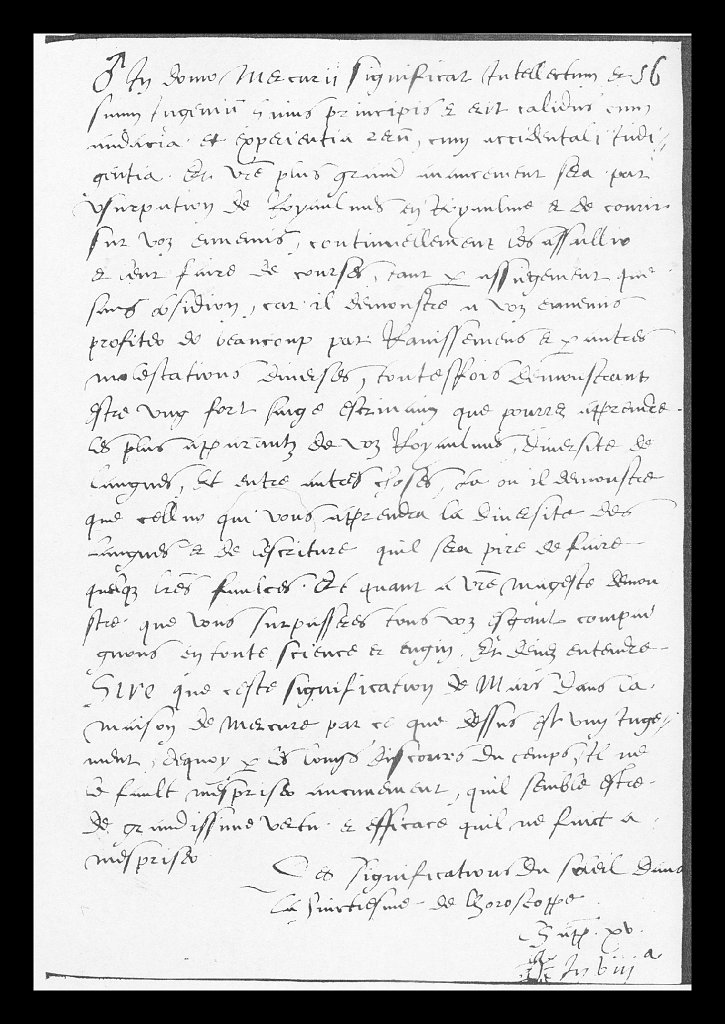 ♂ In domo Mercurij significat Intellectum et 56
summ Ingeniū huius principis et erit calidus cum
audacia et experientia rerū, cum accidentali Indi-
gentia. Et vrē plus grand auancement sera par
vsurpation de Royaulmes en Royaulme et de courir
sur voz ennemis, continuellement les assallir
et leur faire de courses, tant p assiegement que
sans obsidion, car il demonstre a voz ennemis
profiter de beaucoup par Rauissemens et p autres
molestations diuerses, toutesfois demonstrant
estre vng fort saige escriuain que pourrez apprendre
les plus apparantz de voz Royaulmes, diuersite de
langues, Et entre autres choses, la ou il demonstre
que celluy qui vous aprendra la diuersite des
langues et de lescriture quil sera pire de faire
quelqz lrēs faulces. Et quant a vrē mageste demon
stre que vous surpasseres tous voz esgaulx compai
gnons en toute science et engin. Et deuez entendre
Sire que ceste signification de Mars dans la
maison de Mercure par ce que dessus est vng Iuge-
ment, dequoy p les longs discours du temps, Il ne
le fault mespriser aucunement, quil semble estre
de grandissime vertu et efficace quil ne faict a
mespriser
Les significations du soleil dans
la huictiesme de horoscoppe
Supp. xv.
In viij a